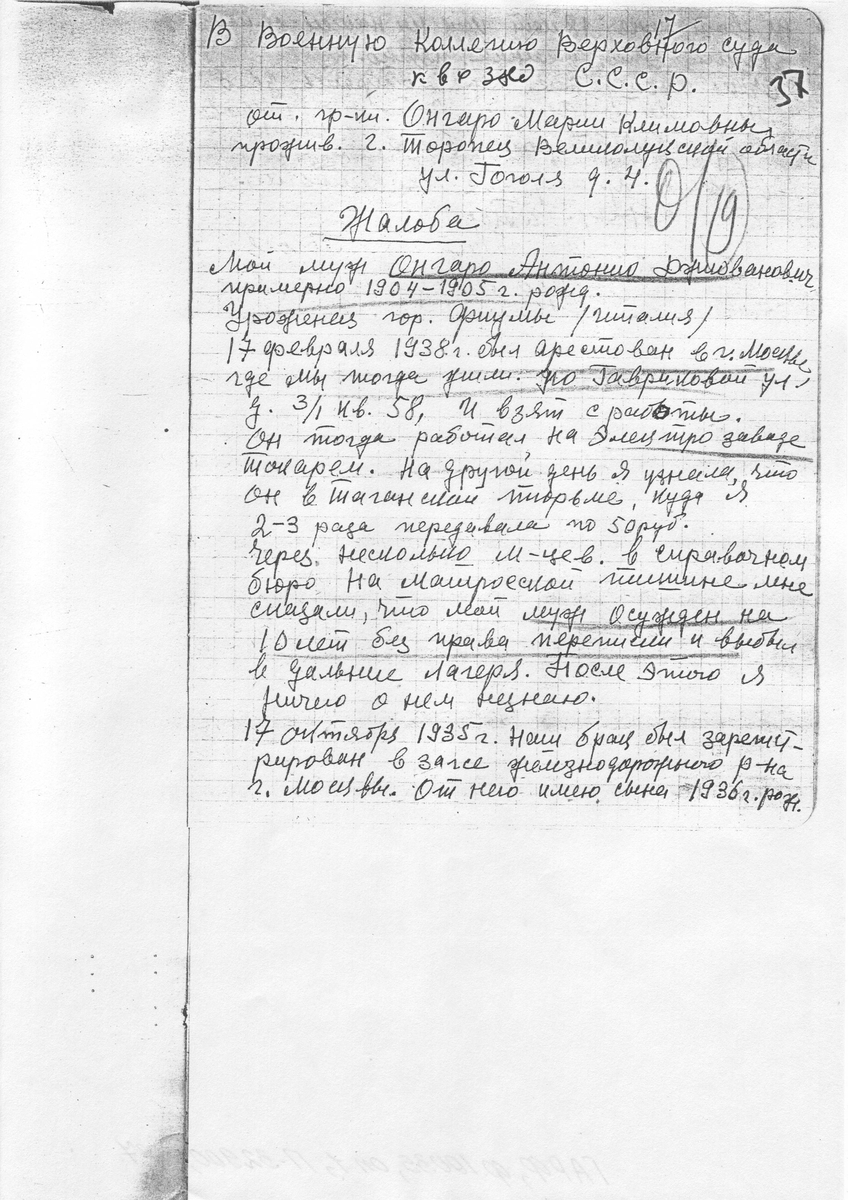 17
В Военную Коллегию Верховного суда
С.С.С.р.
37
от. гр-ки. Онгаро Марии Климовны,
прожив. г. Торопец Великолукской области
ул. Гоголя д. 4.
19
Жалоба
Мой муж Онгаро Антонио
примерно 1904-1905 г. рожд.
Уроженец гор. Фиумы /италия/
17 февраля 1938 г. был арестован в г. Москве
где мы тогда жили. по Гавриковой ул.
д. 3/1 кв. 58, и взят с работы.
Он тогда работал на Электро заводе
токарем. На другой день я узнала, что
он в Таганской тюрьме, куда я
2-3 раза передавала по 50 руб.
Через несколько м-цев. в справочном
бюро на Матросской тишине мне
сказали, что мой муж осужден на
10 лет без права переписки и выбыл
в дальние лагеря. После этого я
ничего о нем незнаю.
17 октября 1935 г. Наш брак был зарегист-
рирован в загсе железнодорожного р-на
г. Москвы. От него имею сына 1936 г. рож.